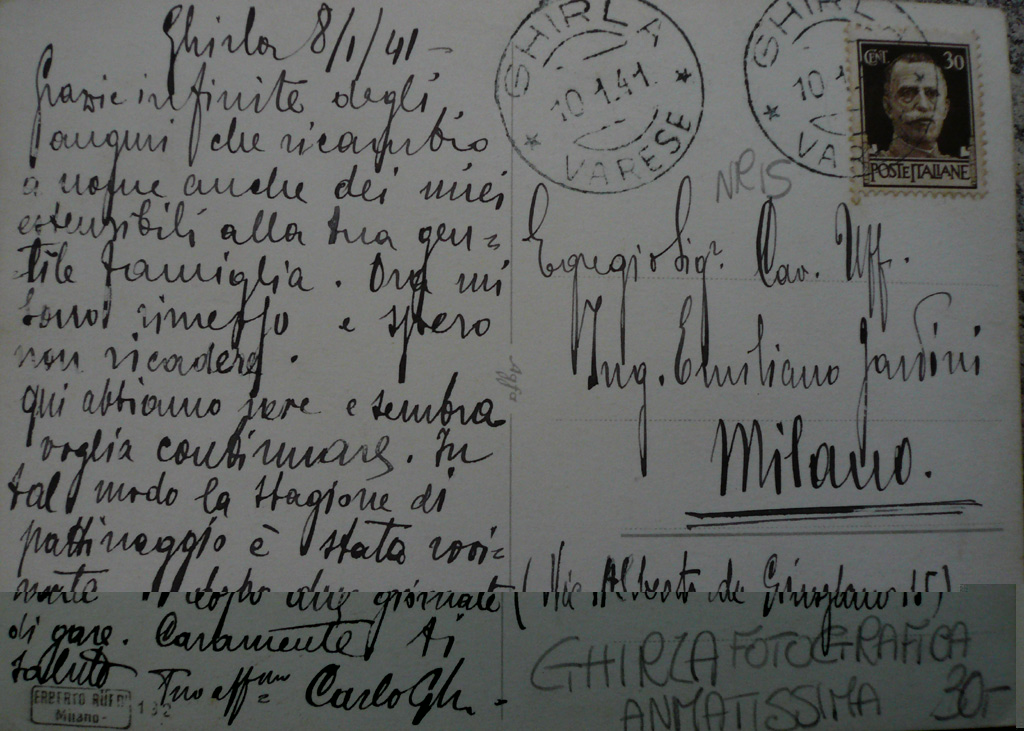 Ghirla 8/1/41-
Grazie infinite degli
auguri che ricambio
a nome anche dei miei
estensibili alla tua gen=
tile famiglia. Ora mi
sono rimesso e spero
non ricadere.
qui abbiamo neve e sembra
voglia continuare. In
tal modo la stagione di
pattinaggio è stata rovi=
nata dopo due giornate
di gare. Caramente ti
saluto
Tuo aff.mo Carlo Gh.
GHIRLA
10.1.41.
VARESE
GHIRLA
10.1
VA
CENT. 30
POSTE ITALIANE
NR 15
Egregio Sig. Cav. Uff.
Ing. Emiliano
Milano.
(Via Alberto da Giussano 15)
GHIRLA FOTOGRAFICA
ANMATISSIMA 30-
Milano-
132